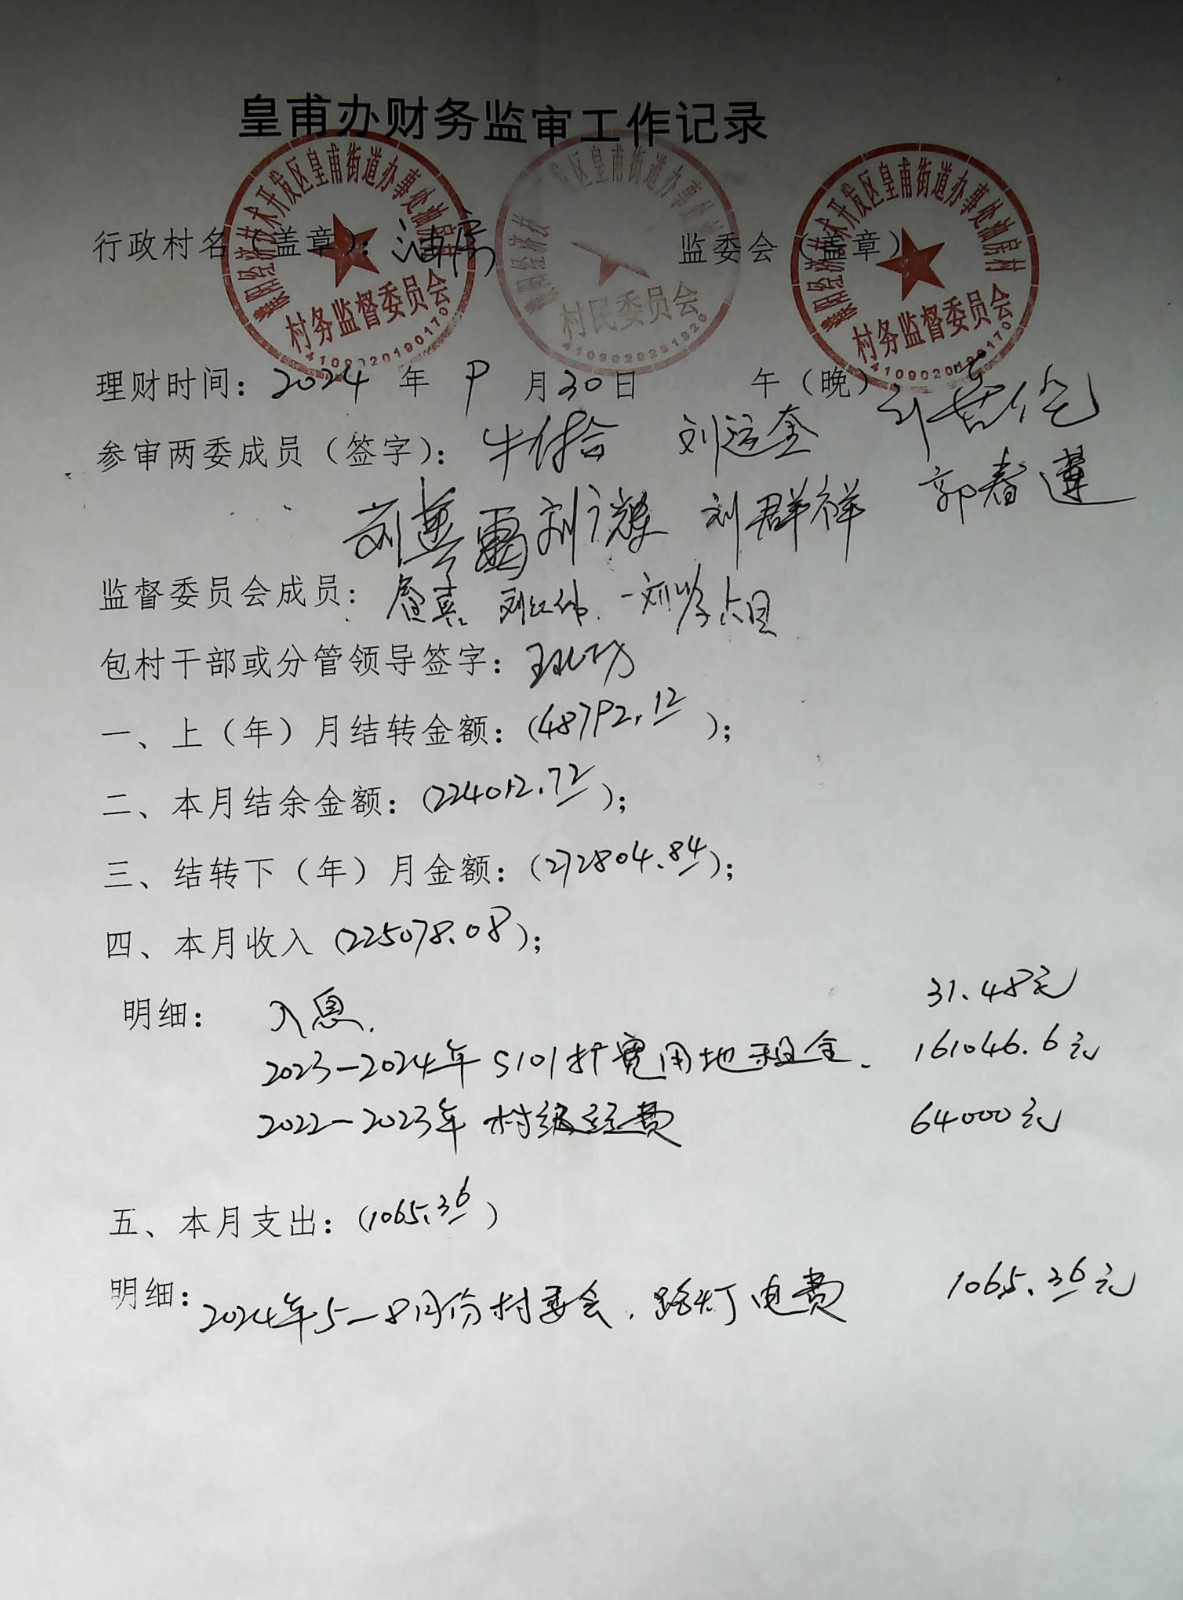 皇甫办财务监审工作记录
行政村名（盖章）：油房 监委会（盖章）
濮阳经济技术开发区皇甫街道办事处油房村
村务监督委员会
4109020190170
区皇甫街道办事处
村民委员会
濮阳经济技术开发区皇甫街道办事处油房村
村务监督委员会
理财时间：2024 年 9 月30日 午（晚）
参审两委成员（签字）： 刘运奎
刘群祥 郭春莲
监督委员会成员： 刘红伟
包村干部或分管领导签字：
一、上（年）月结转金额：（48792.12）；
二、本月结余金额：（224012.72）；
三、结转下（年）月金额：（272804.84）；
四、本月收入（225078.08）；
明细： 入息. 31.48元
2023-2024年S101扩宽用地租金. 161046.6元
2022-2023年村级经费 64000元
五、本月支出：（1065.36）
明细：2024年5-8月份村委会、路灯电费 1065.36元